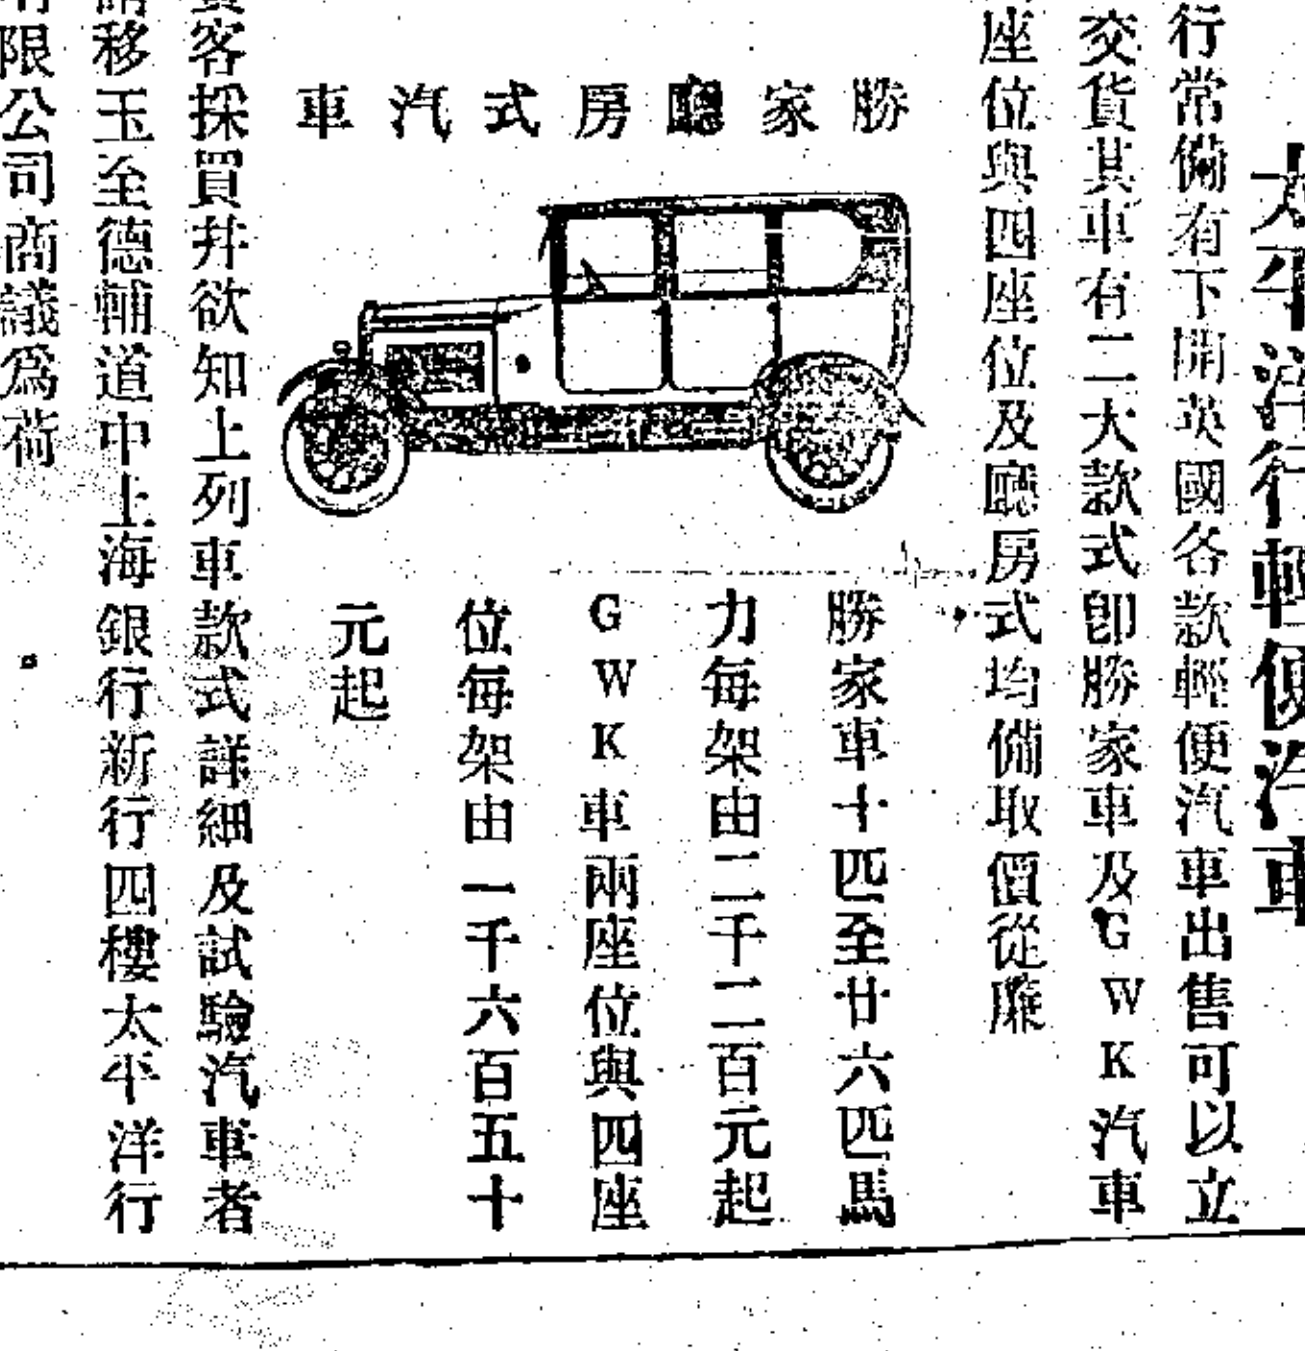 太平洋行輕便汽車
行常備有下開英國各款輕便汽車出售可以立
交貨其車有二大款式卽勝家車及GWK汽車
座位與四座位及廳房式均備取價從廉
勝家廳房式汽車
勝家車十匹至廿六匹馬
力每架由二千二百元起
GWK車兩座位與四座
位每架由一千六百五十
元起
客採買并欲知上列車款式詳細及試驗汽車者
移玉至德輔道中上海銀行新行四樓太平洋行
限公司商議爲荷